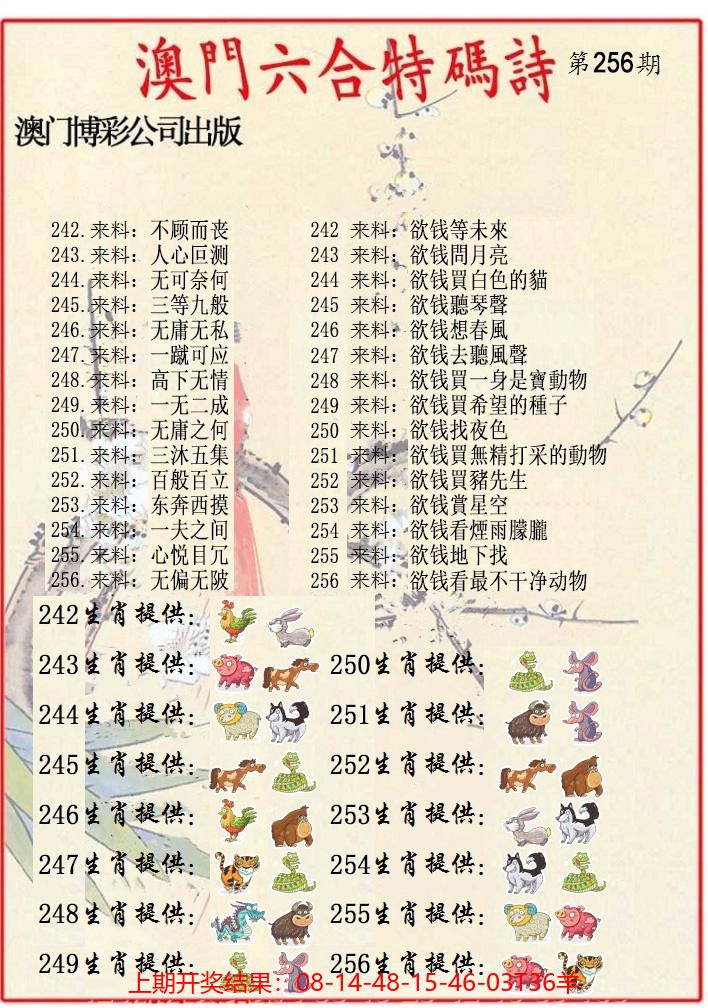 澳門六合特碼詩 第256期
澳门博彩公司出版
242.来料：不顾而丧
243.来料：人心叵测
244.来料：无可奈何
245.来料：三等九般
246.来料：无庸无私
247.来料：一蹴可应
248.来料：高下无情
249.来料：一无二成
250.来料：无庸之何
251.来料：三沐五集
252.来料：百般百立
253.来料：东奔西摸
254.来料：一夫之间
255.来料：心悦目冗
256.来料：无偏无陂
242 来料：欲钱等未來
243 来料：欲钱問月亮
244 来料：欲钱買白色的貓
245 来料：欲钱聽琴聲
246 来料：欲钱想春風
247 来料：欲钱去聽風聲
248 来料：欲钱買一身是寶動物
249 来料：欲钱買希望的種子
250 来料：欲钱找夜色
251 来料：欲钱買無精打采的動物
252 来料：欲钱買豬先生
253 来料：欲钱賞星空
254 来料：欲钱看煙雨朦朧
255 来料：欲钱地下找
256 来料：欲钱看最不干净动物
242生肖提供：
243生肖提供：
244生肖提供：
245生肖提供：
246生肖提供：
247生肖提供：
248生肖提供：
249生肖提供：
250生肖提供：
251生肖提供：
252生肖提供：
253生肖提供：
254生肖提供：
255生肖提供：
256生肖提供：
上期开奖结果：08-14-48-15-46-03T36羊